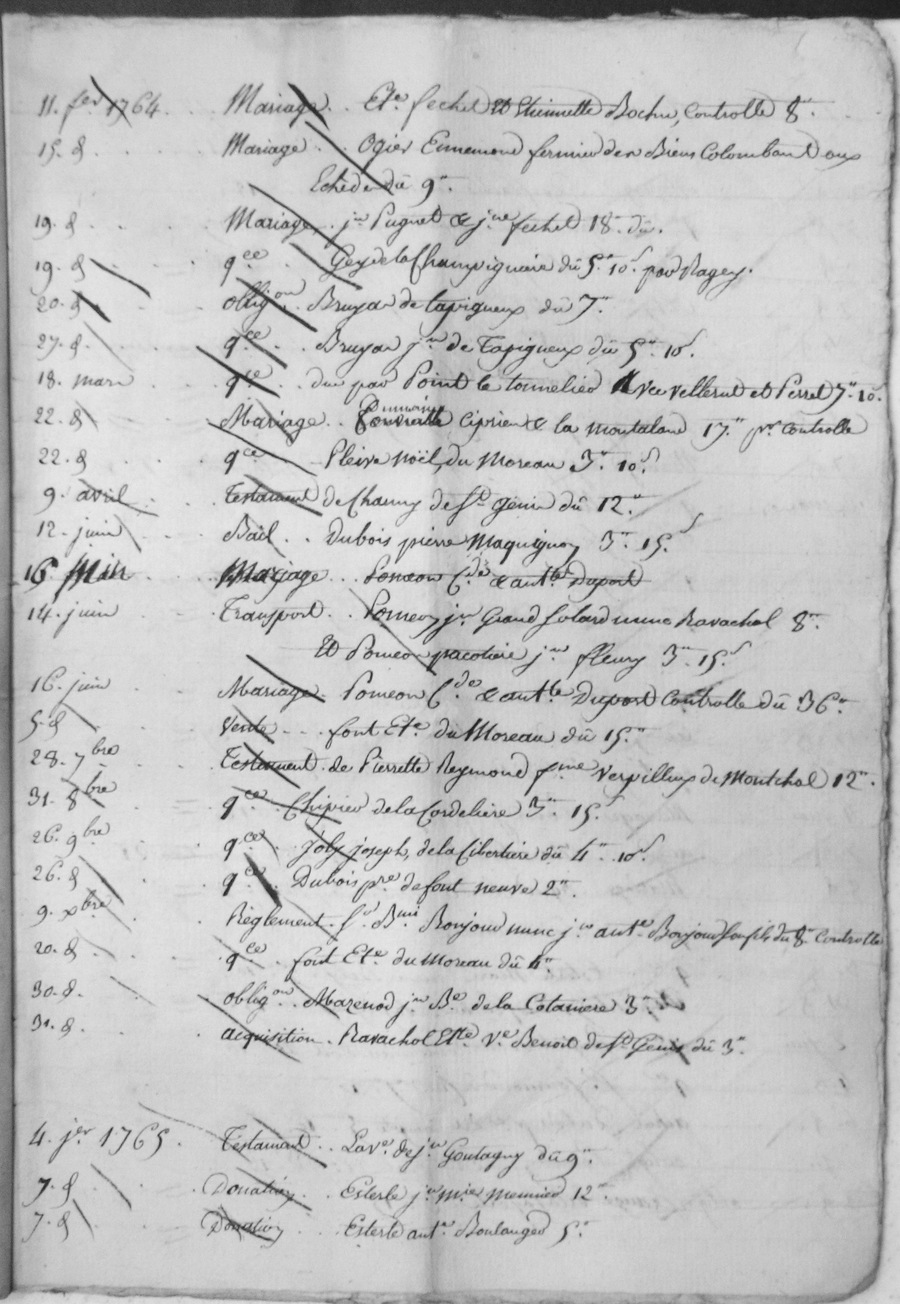 11. fer 1764. Mariage. Ete fechet et Etiennette Bochu, Controlle 8"
15. d Mariage Ogier Ennemond fermier des Biens Colombant aux
Echède du 9".
19. d Mariage. jn Pugnet & jne fechet 18" du.
19. d qce Gey de la Champignaire du 5" 10s par Ragey.
20. d obligon Bruyas de tapigneux du 7"
27. d qce Bruyas jn de Tapigneux du 5" 10s.
18. mars qce due par Point le tonnelier vellerut et Perret 7" 10s.
22. d Mariage Ciprien & la montaland 17" pr Controlle
22. d qce Pleive Noël, du Moreau 3" 10s.
9. avril Testament de Chauny de St Genis du 12"
12. juin Bail. Dubois pierre Maquignon 3" 15s
16 Mariage Pomeon Cde & anthte Duport
14. juin Transport. Pomeon jn Grand folard nunc Ravachol 8"
Et Pomeon pacotiere jn fleury 3" 15s
16. juin Mariage Pomeon Cde & antte Duport Controlle du 36"
5. d Vente font Ete du Moreau du 15"
28. 7bre Testament de Pierrette Reymond fme Verpilleux de Montchal 12"
31. 8bre qce Chipier de la Cordeliere 3" 15s
26. 9bre qce joly joseph, de la Libertiere du 4" 10s.
26. d qce Dubois pre de font neuve 2"
9. xbre Règlement. Bonjour nunc jn ante Bonjour son fils, du 8" Controlle
20. d qce font Ete du Moreau du 4"
30. d. obligon Mazenod jn Be de la Cotaniere 3"
31. d. acquisition. Ravachol Ette Ve Benoit de St Genis du 3"
4. jer 1765. Testament. La ve de jn Goutagny du 9"
7. d Donation Esterle jn mie meunier 12"
7. d Donation Esterle ante Boulanger 5"